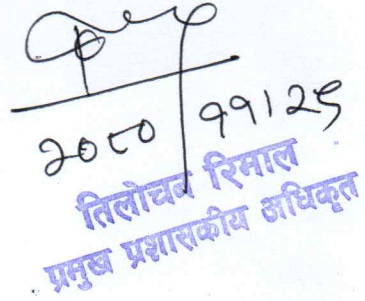 २०८० ११।२९
तिलोचन रिमाल
प्रमुख प्रशासकीय अधिकृत